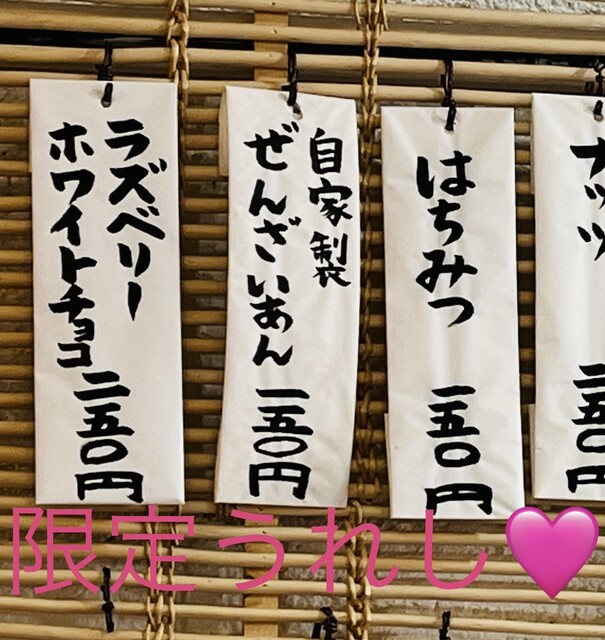 ナッツ 二五〇円
はちみつ 一五〇円
自家製
ぜんざいあん 一五〇円
ラズベリー
ホワイトチョコ 二五〇円
限定うれし🩷